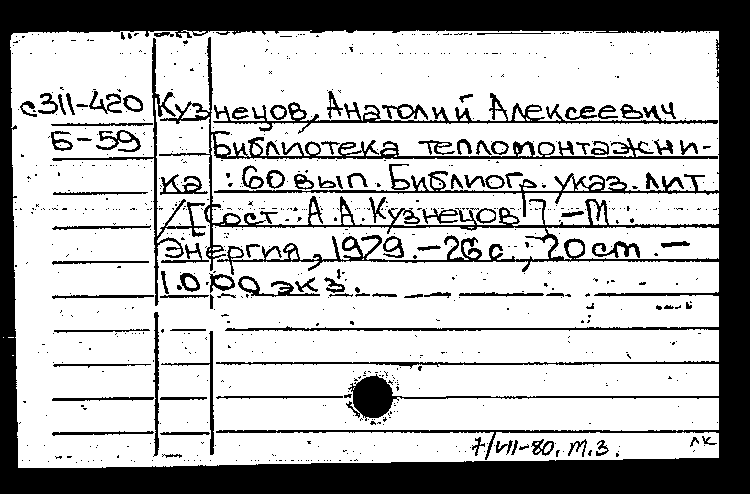 с311-420 Кузнецов, Анатолий Алексеевич
Б-59 Библиотека тепломонтажни-
ка : 60 вып. Библиогр. указ. лит
/[Сост.: А.А.Кузнецов]. - М.:
Энергия, 1979. - 26 с.; 20 cm. -
1.000 экз.
7/VII-80. т.3.
лк